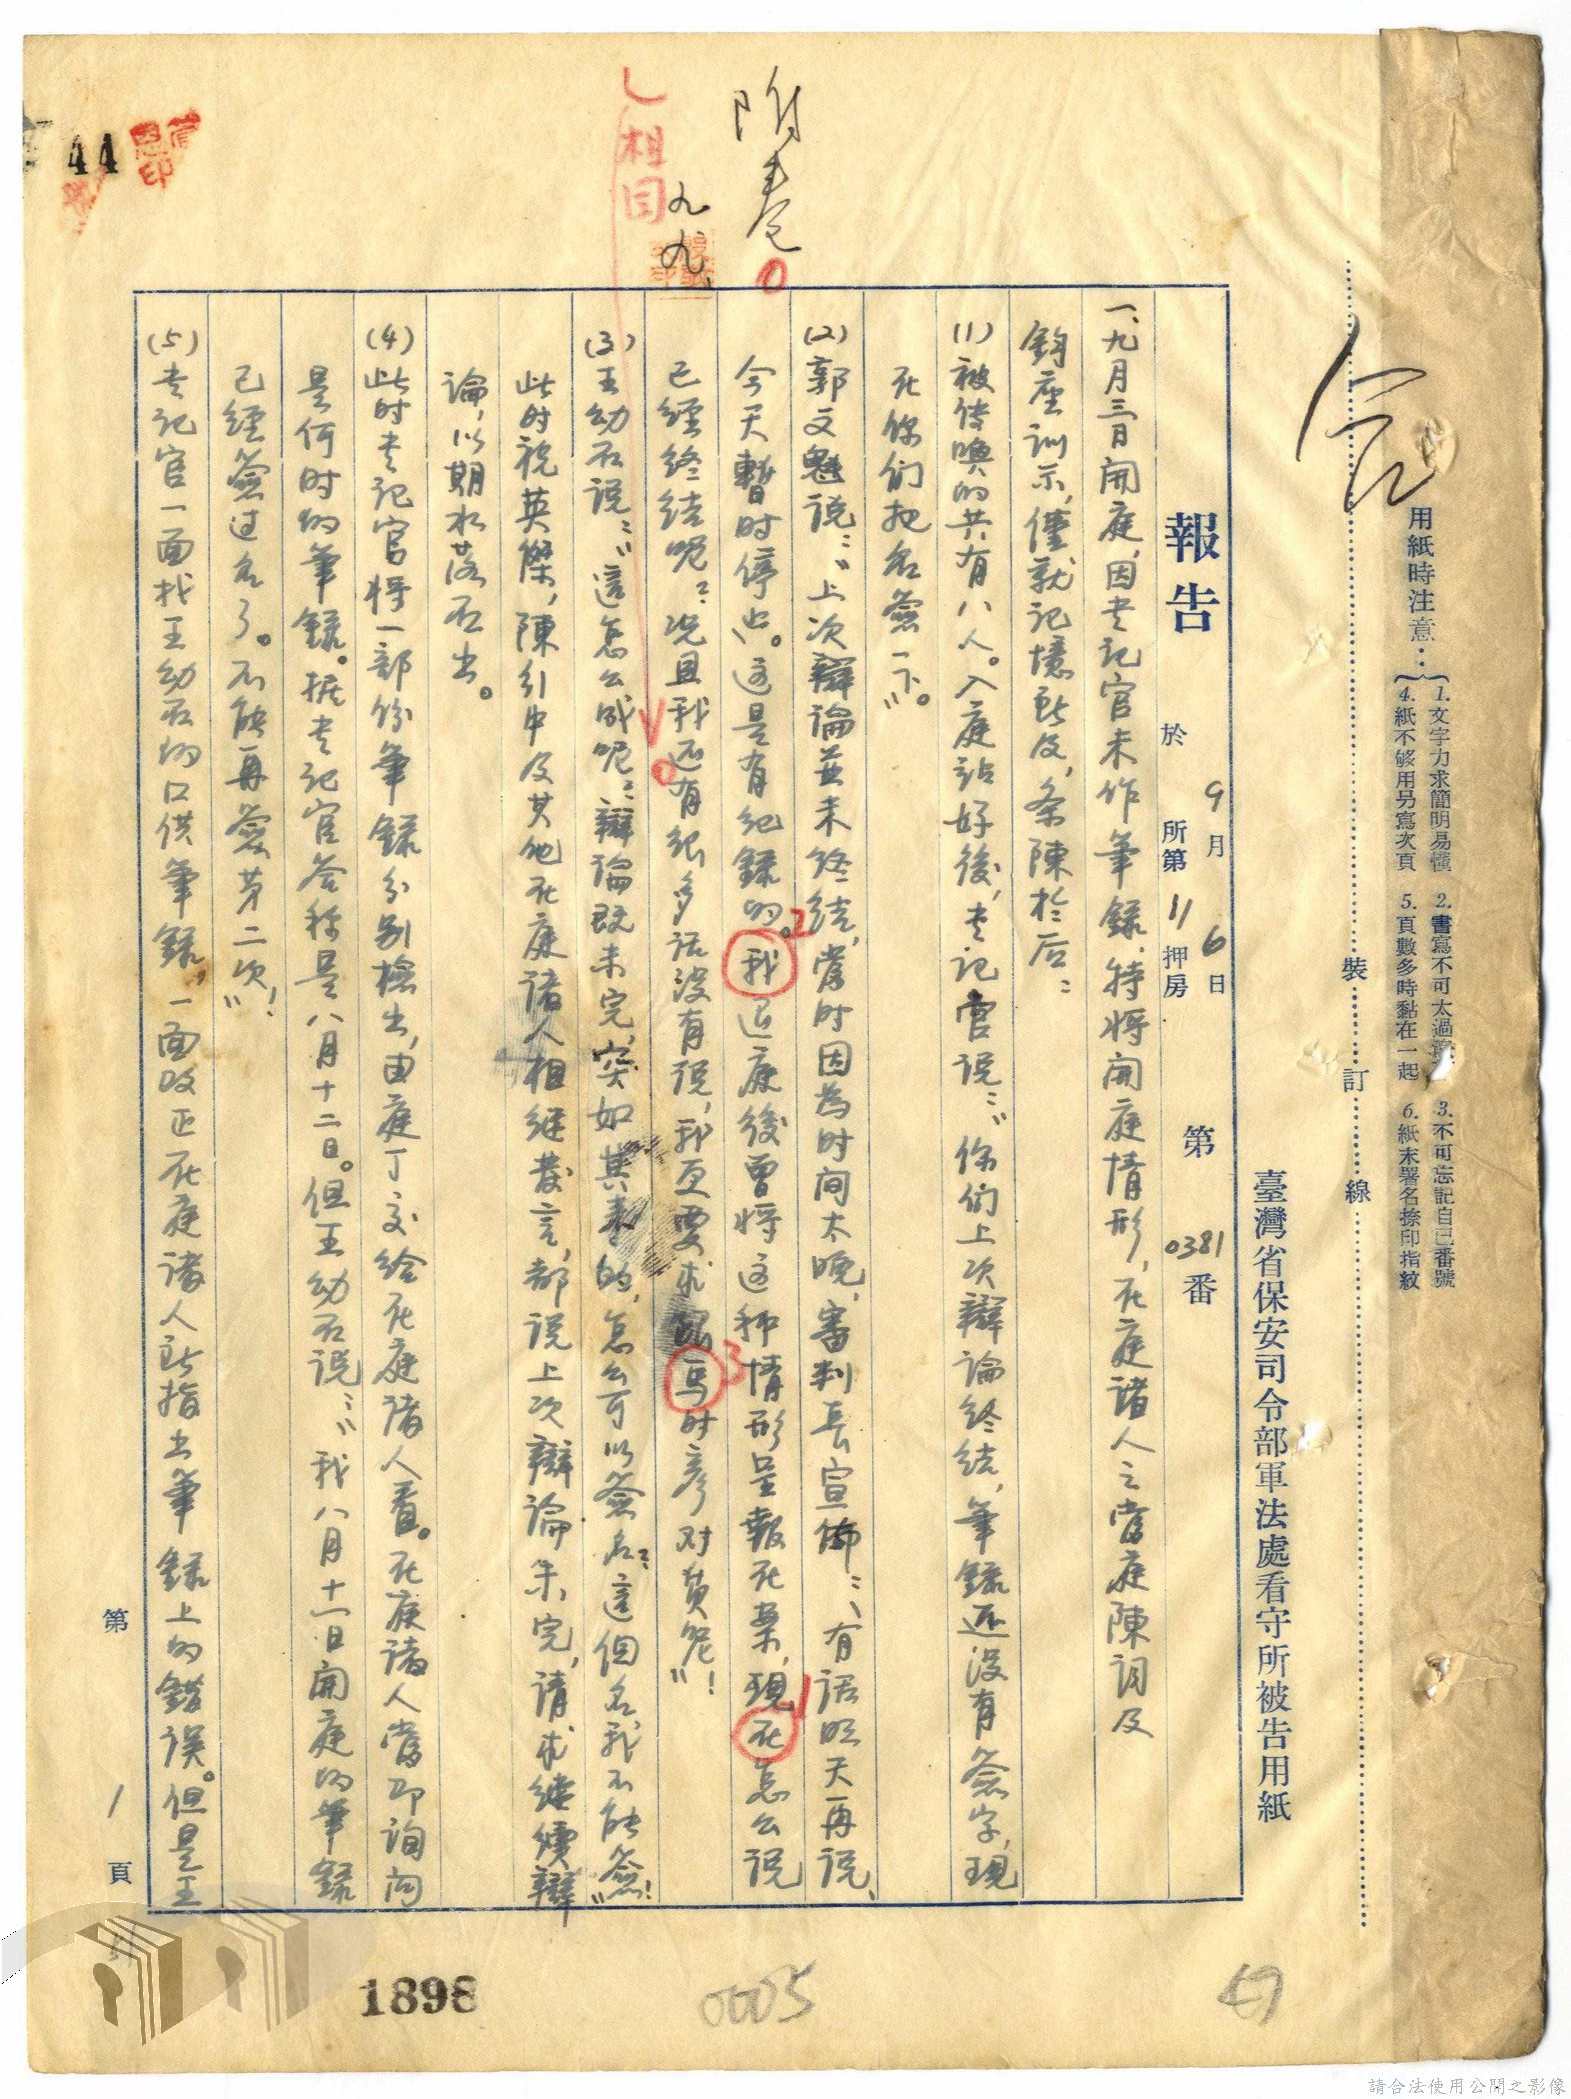 用紙時注意：
1. 文字力求簡明易懂 2. 書寫不可太過 3. 不可忘記自己番號
4. 紙不够用另寫次頁 5. 頁數多時黏在一起 6. 紙末署名捺印指紋
裝 訂 線
臺灣省保安司令部軍法處看守所被告用紙
報告 於 9月6日 所第11押房 第0381番
一、九月三日開庭，因书记官未作筆錄，特将開庭情形，在庭諸人之當庭陳詞及
鈞座训示，僅就记憶所及，条陳於后：
(1)被传唤的共有八人。入庭站好後，书记官说：“你们上次辯論终结，筆錄还没有签字，現
在你们把名簽一下。”
(2)郭文魁说：“上次辯論並未终结，當时因為时间太晚，審判長宣佈：‘有话明天再说，
今天暫时停止’。这是有纪錄的。我退庭後曾将这种情形呈報在案，現在怎么说
已經终结呢？况且我还有很多话没有说，那更要求跟馬时彦对质呢！”
(3)王幼石说：“這怎么成呢？辯論既未完，突如其来的，怎么可以签名？這個名我不能簽！”
此时祝英傑，陳引中及其他在庭諸人相继發言，都说上次辯論未完，请求继續辯
論，以期水落石出。
(4)此时书记官将一部份筆錄分别檢出，由庭丁交给在庭諸人看。在庭諸人當即詢问
是何时的筆錄。据书记官答称是八月十二日。但王幼石说：“我八月十一日開庭的筆錄
已經簽过名了。不能再簽第二次！”
(5)书记官一面找王幼石的口供筆錄，一面改正在庭諸人所指出筆錄上的錯误。但是王
第1頁
附卷
九九
相同
0
2
3
1
0
44
1898
0005
請合法使用公開之影像